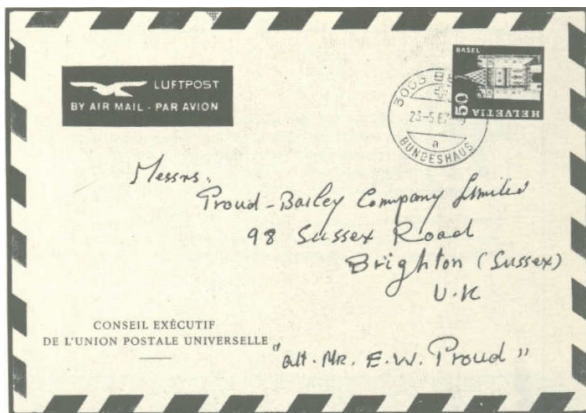 LUFTPOST
BY AIR MAIL - PAR AVION
BASEL
50
HELVETIA
3003
23-5.67
a
BUNDESHAUS
Messrs.
Proud-Bailey Company Limited
98 Sussex Road
Brighton (Sussex)
U.K
CONSEIL EXÉCUTIF
DE L'UNION POSTALE UNIVERSELLE
"att. Mr. E.W. Proud"